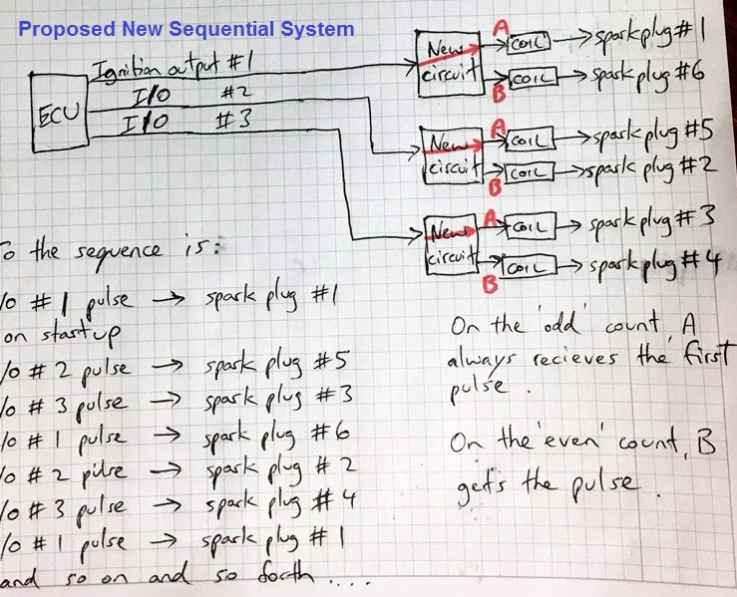 Proposed New Sequential System
ECU
Ignition output #1
I/O #2
I/O #3
New circuit
A
COIL
spark plug #1
B
COIL
spark plug #6
New circuit
A
COIL
spark plug #5
B
COIL
spark plug #2
New circuit
A
COIL
spark plug #3
B
COIL
spark plug #4
To the sequence is:
/o #1 pulse → spark plug #1
on startup
/o #2 pulse → spark plug #5
/o #3 pulse → spark plug #3
/o #1 pulse → spark plug #6
/o #2 pulse → spark plug #2
/o #3 pulse → spark plug #4
/o #1 pulse → spark plug #1
and so on and so forth ....
On the 'odd' count, A
always recieves the first
pulse.
On the 'even' count, B
gets the pulse.